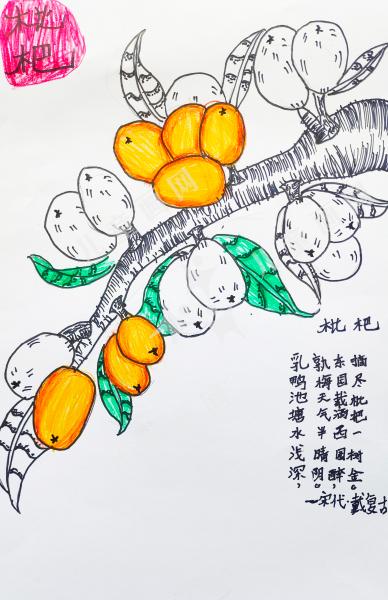 枇
杷
枇杷
乳鸭池塘水浅深，
孰梅天气半晴阴。
东园载酒西园醉，
摘尽枇杷一树金。
—宋代·戴复古